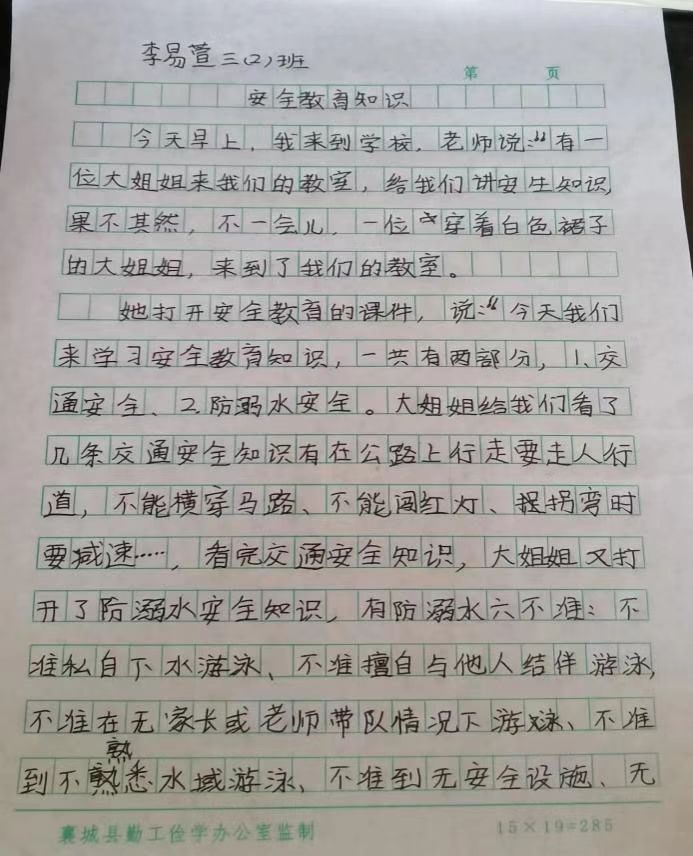 李易萱 三(2)班
第 页
安全教育知识
今天早上，我来到学校，老师说：“有一
位大姐姐来我们的教室，给我们讲安生知识，
果不其然，不一会儿，一位 穿着白色裙子
的大姐姐，来到了我们的教室。
她打开安全教育的课件，说：“今天我们
来学习安全教育知识，一共有两部分，1、交
通安全、2、防溺水安全。大姐姐给我们看了
几条交通安全知识有在公路上行走要走人行
道，不能横穿马路、不能闯红灯、拐弯时
要减速……，看完交通安全知识，大姐姐又打
开了防溺水安全知识，有防溺水六不准：不
准私自下水游泳、不准擅自与他人结伴游泳，
不准在无家长或老师带队情况下游泳、不准
到不熟悉水域游泳、不准到无安全设施、无
襄城县勤工俭学办公室监制
15×19=285